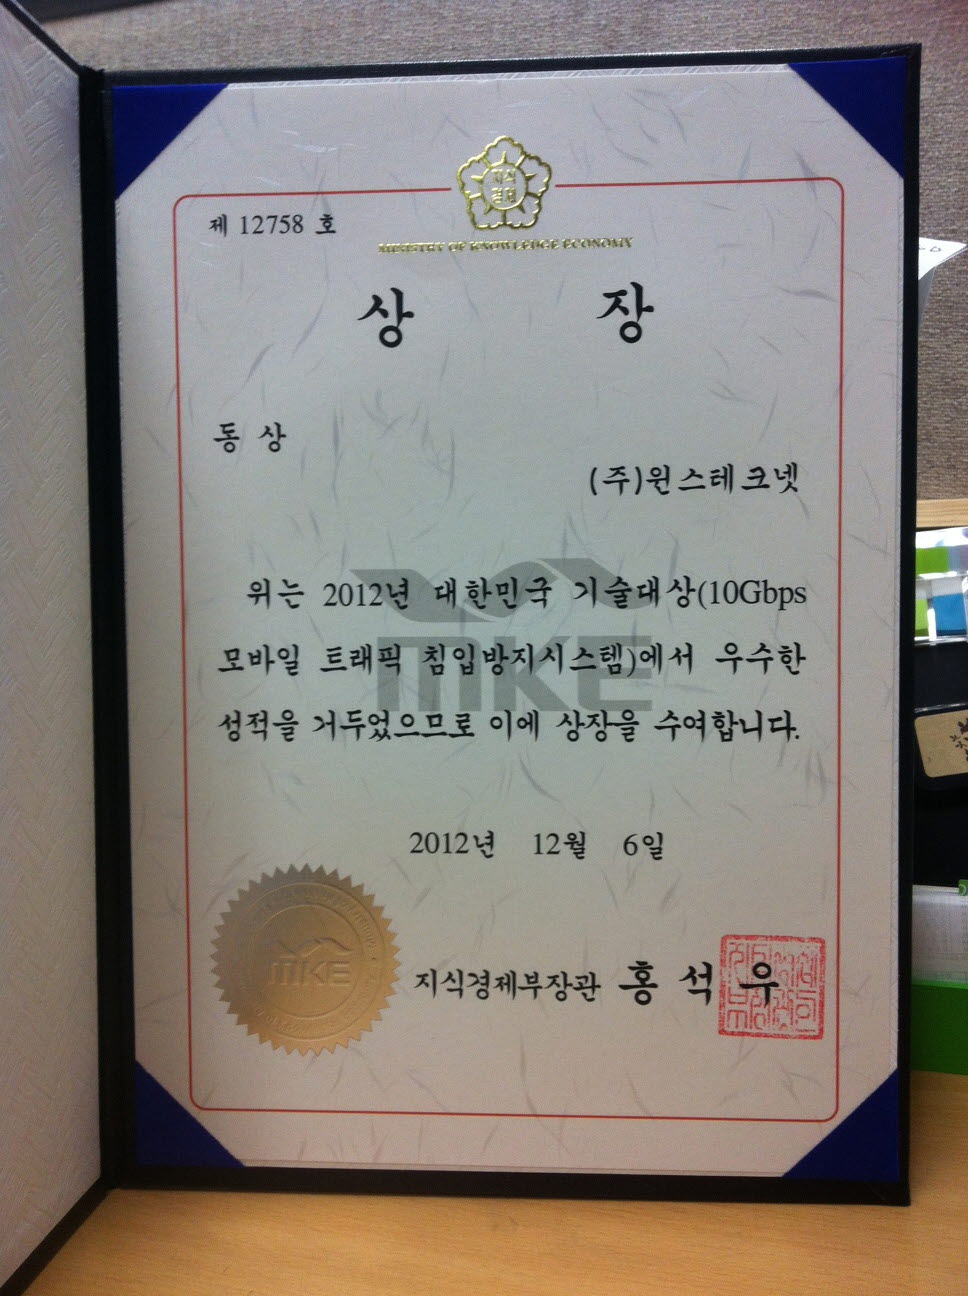 지식
경제
제 12758 호
MINISTRY OF KNOWLEDGE ECONOMY
상 장
동 상
(주)윈스테크넷
위는 2012년 대한민국 기술대상(10Gbps
모바일 트래픽 침입방지시스템)에서 우수한
성적을 거두었으므로 이에 상장을 수여합니다.
MKE
2012년 12월 6일
MKE
지식경제부장관 홍 석 우